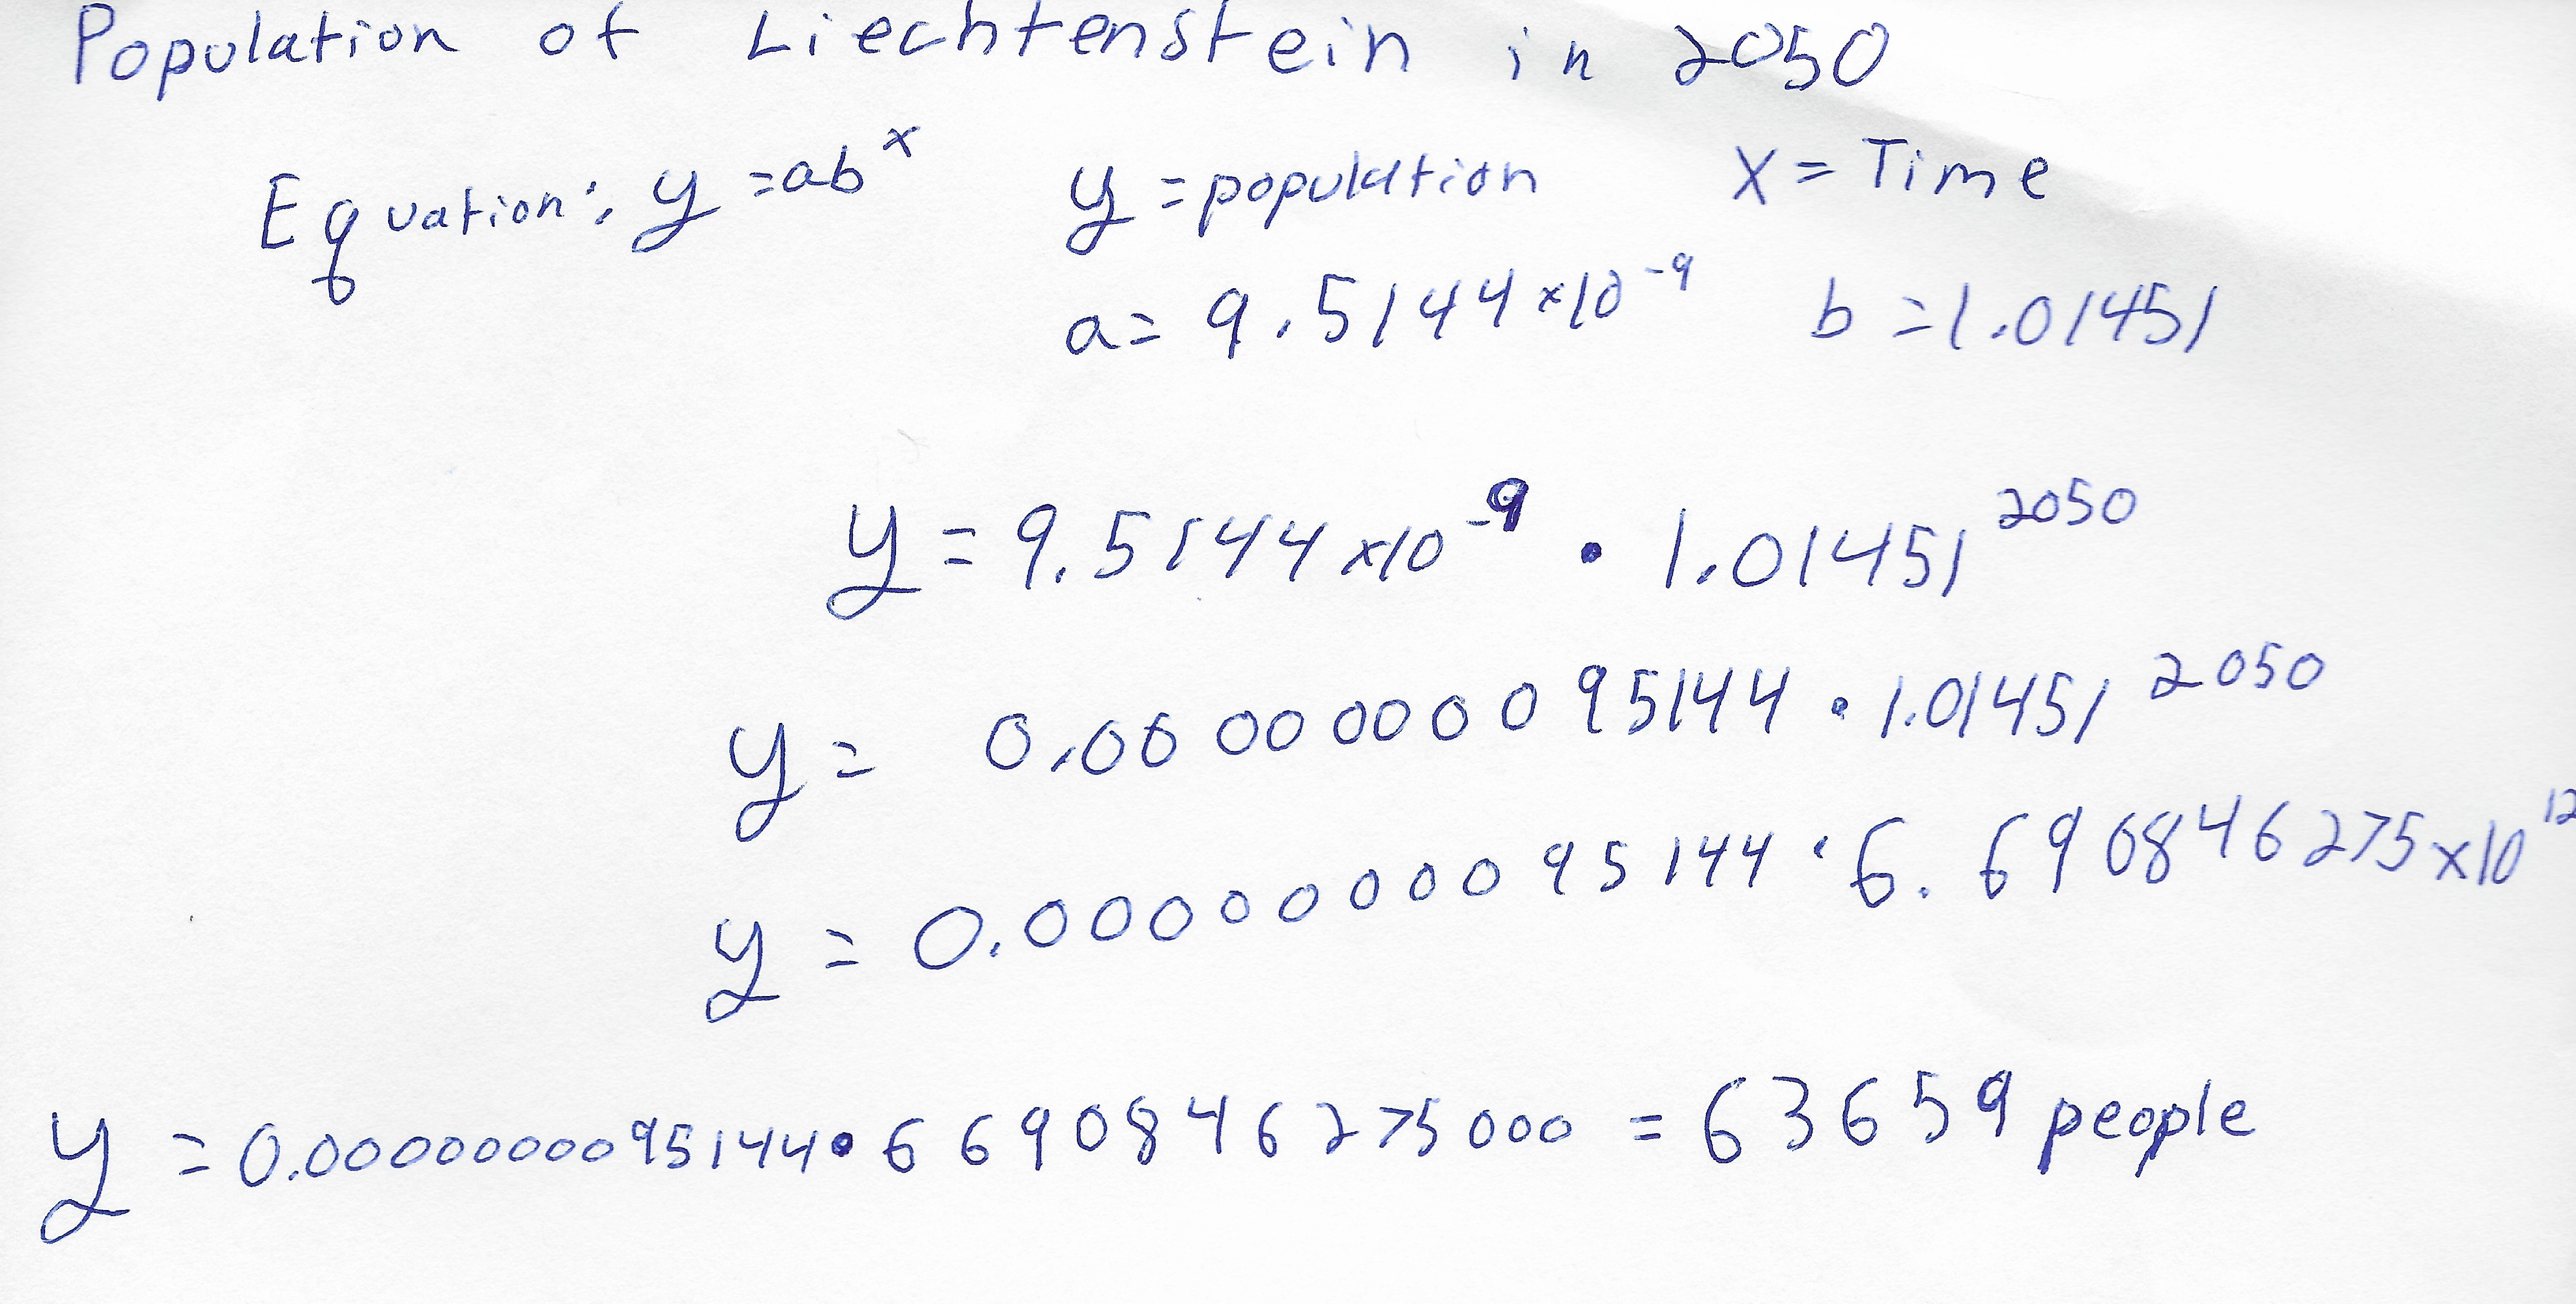 Population of Liechtenstein in 2050
Equation: y = ab^x y = population x = Time
a = 9.5144 x 10^-9 b = 1.01451
y = 9.5144 x 10^-9 • 1.01451^2050
y = 0.0000000095144 • 1.01451^2050
y = 0.0000000095144 • 6.690846275 x 10^12
y = 0.0000000095144 • 6690846275000 = 63659 people